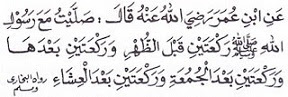 عَنِ ابْنِ عُمَرَ رَضِيَ اللهُ عَنْهُ قَالَ: صَلَّيْتُ مَعَ رَسُوْلِ
اللهِ ﷺ رَكْعَتَيْنِ قَبْلَ الظُّهْرِ وَرَكْعَتَيْنِ بَعْدَهَا
وَرَكْعَتَيْنِ بَعْدَ الْجُمُعَةِ وَرَكْعَتَيْنِ بَعْدَ الْعِشَاءِ رواه البخاري ومسلم